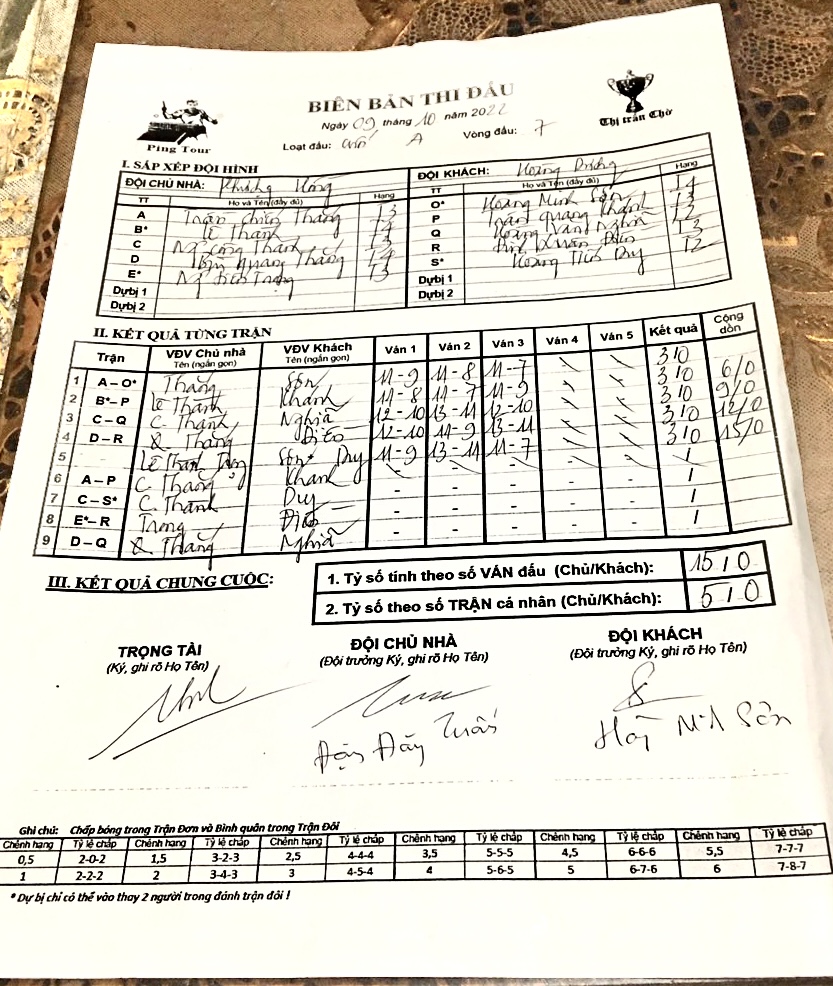 BIÊN BẢN THI ĐẤU
Ping Tour
Thị trấn Chờ
Ngày 09 tháng 10 năm 2022
Loạt đấu: A Vòng đấu: 7
I. SẮP XẾP ĐỘI HÌNH
ĐỘI CHỦ NHÀ: ĐỘI KHÁCH: Hoàng
TT Họ và Tên (đầy đủ) Hạng TT Họ và Tên (đầy đủ) Hạng
A Trần Chiến Thắng 13 O* Hoàng Minh Sơn 14
B* Lê Thành P Trần Quang Khánh 13
C Ng Công Thành Q Hoàng Văn Nghĩa
D Quang Thắng R Đình Xuân
E* Ng Tiến Trọng S* Hoàng Tiến Duy 12
Dự bị 1 Dự bị 1
Dự bị 2 Dự bị 2
II. KẾT QUẢ TỪNG TRẬN
Trận VĐV Chủ nhà Tên (ngắn gọn) VĐV Khách Tên (ngắn gọn) Ván 1 Ván 2 Ván 3 Ván 4 Ván 5 Kết quả Cộng dồn
1 A – O* Thắng Sơn 11-9 11-8 11-7 3/0
2 B* – P Lê Thành Khánh 11-8 11-7 11-9 3/0 6/0
3 C – Q C Thành Nghĩa 12-10 13-11 12-10 3/0 9/0
4 D – R Q Thắng 12-10 11-9 13-11 3/0 12/0
5 Lê Thành Sơn* Duy 11-9 13-11 11-7 3/0 15/0
6 A – P C Thắng Khánh - - - - - /
7 C – S* C Thành Duy - - - - - /
8 E* – R Trọng - - - - - /
9 D – Q Q Thắng Nghĩa - - - - - /
III. KẾT QUẢ CHUNG CUỘC:
1. Tỷ số tính theo số VÁN đấu (Chủ/Khách): 15/0
2. Tỷ số theo số TRẬN cá nhân (Chủ/Khách): 5/0
TRỌNG TÀI ĐỘI CHỦ NHÀ ĐỘI KHÁCH
(Ký, ghi rõ Họ Tên) (Đội trưởng Ký, ghi rõ Họ Tên) (Đội trưởng Ký, ghi rõ Họ Tên)
Sơn
Ghi chú: Chấp bóng trong Trận Đơn và Bình quân trong Trận Đôi
Chênh hạng Tỷ lệ chấp Chênh hạng Tỷ lệ chấp Chênh hạng Tỷ lệ chấp Chênh hạng Tỷ lệ chấp Chênh hạng Tỷ lệ chấp Chênh hạng Tỷ lệ chấp
0,5 2-0-2 1,5 3-2-3 2,5 4-4-4 3,5 5-5-5 4,5 6-6-6 5,5 7-7-7
1 2-2-2 2 3-4-3 3 4-5-4 4 5-6-5 5 6-7-6 6 7-8-7
* Dự bị chỉ có thể vào thay 2 người trong đánh trận đôi !